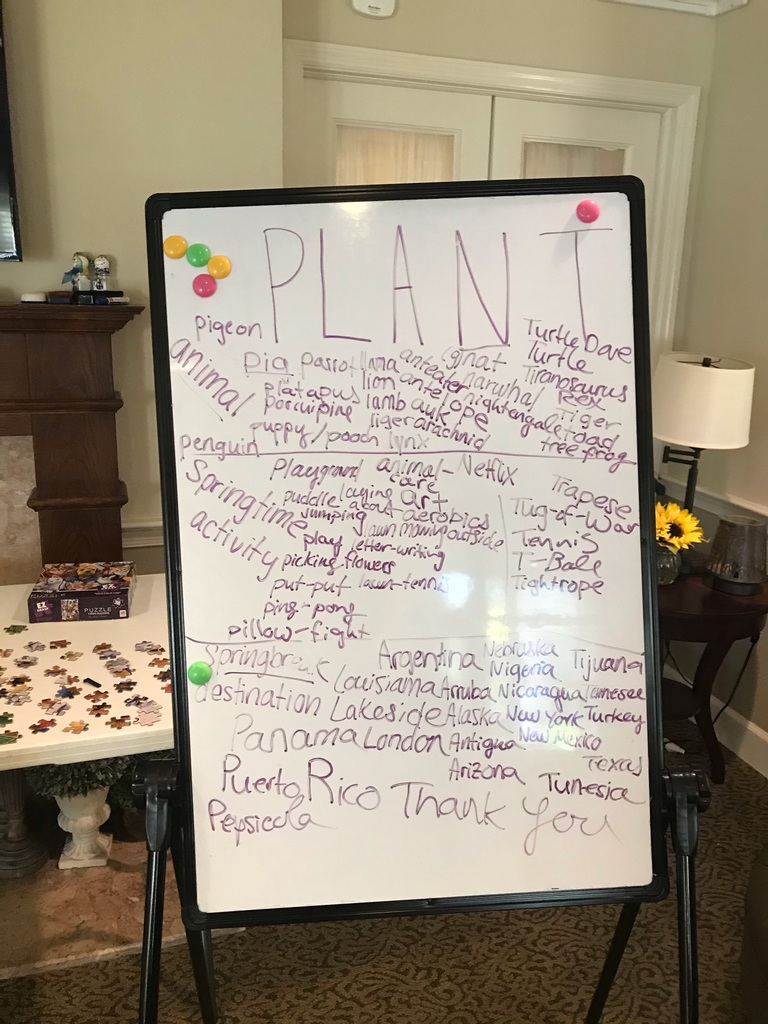 PLANT
pigeon Turtle Dove
animal pig parrot llama anteater gnat Turtle
platapus lion antelope narwhal Tiranosaurus Rex
porcuipine lamb auk nightengale Tiger
puppy/pooch liger arachnid toad
penguin lynx tree frog
Springtime activity
Playground animal-care Netflix Trapese
puddle jumping laying about art aerobics Tug-of-War
play lawn mowing outside Tennis
picking-flowers letter-writing T-Bale
put-put lawn-tennis Tightrope
ping-pong
pillow-fight
Springbreak destination
Argentina Nebraska Tijuana
Louisiana Arruba Nigeria
Lakeside Alaska Nicaragua Tennesee
Panama London Antigua New York Turkey
Arizona New Mexico Texas
Puerto Rico Tunesia
Pepsicola Thank You
PUZZLE